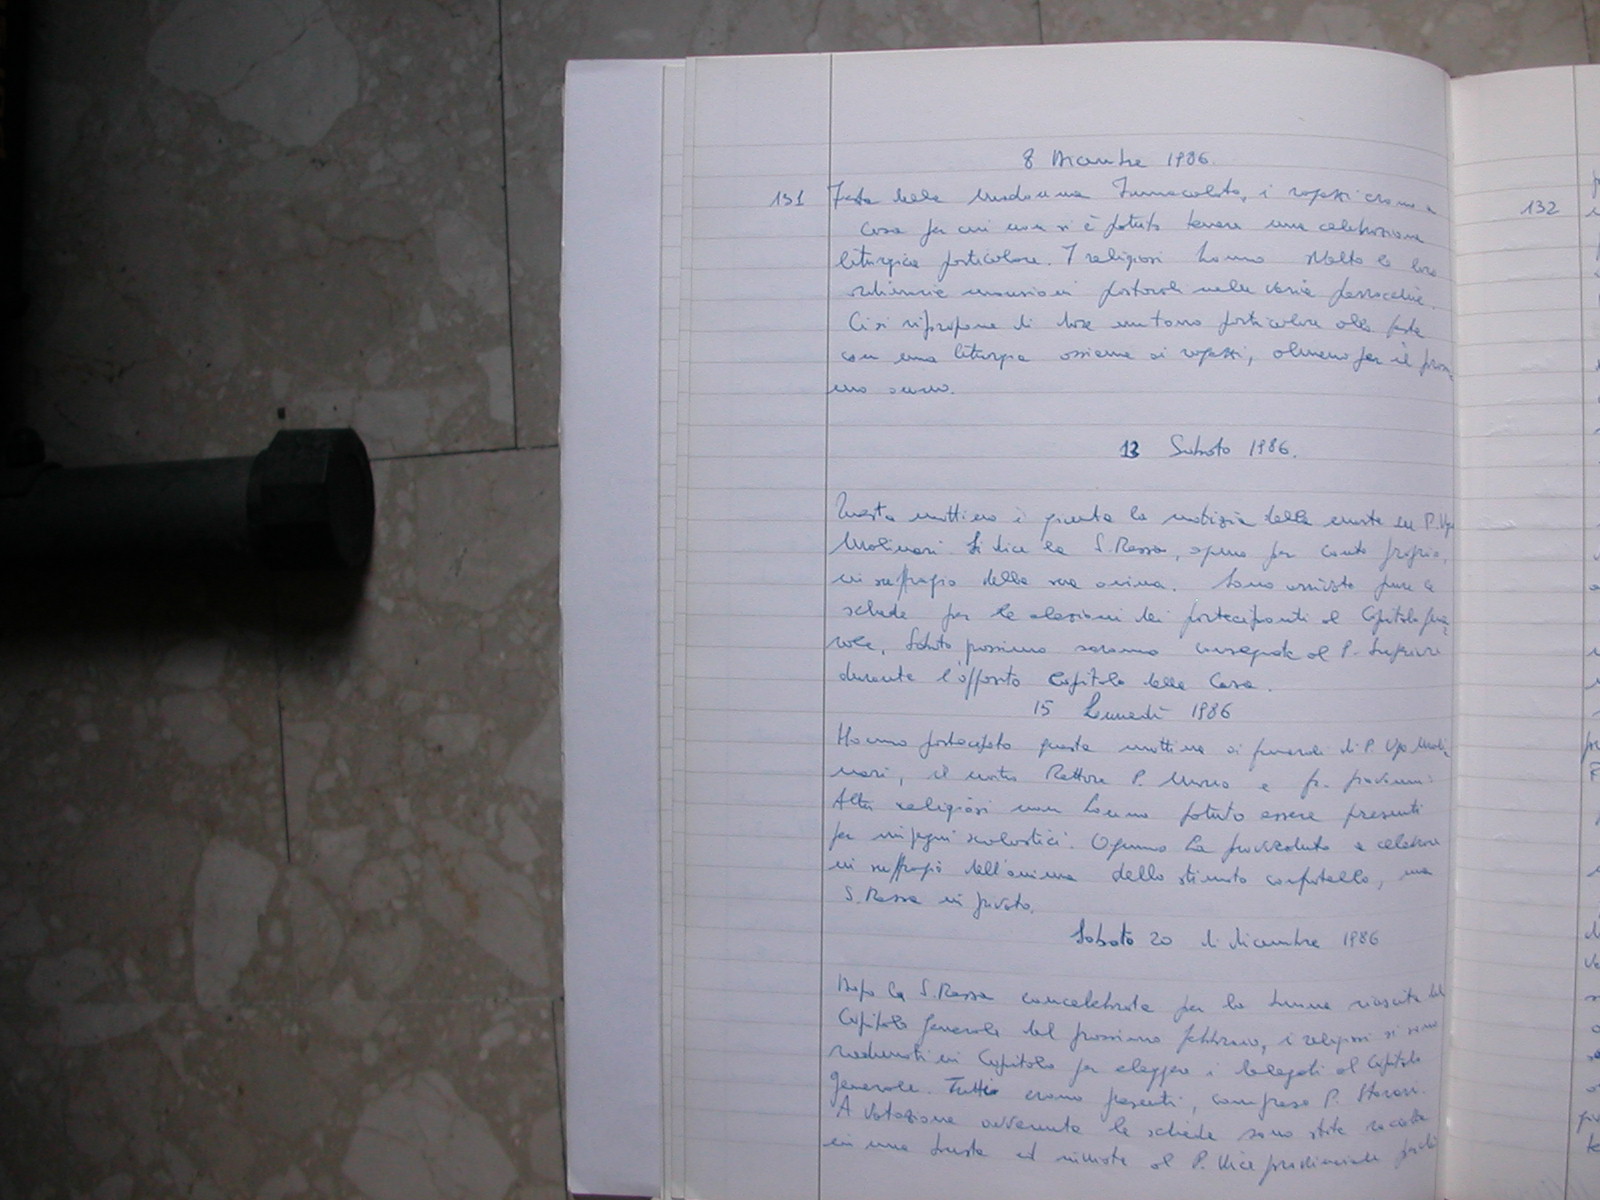 8 Dicembre 1986.
131 Festa della Madonna Immacolata, i ragazzi erano a
casa per cui non si è potuto tenere una celebrazione
liturgica particolare. I religiosi hanno svolto le loro
mansioni pastorali nelle varie parrocchie.
Ci si ripropone di dare un tono particolare alla festa
con una liturgia assieme ai ragazzi, almeno per il prossi
mo anno.
13 Sabato 1986.
Questa mattina è giunta la notizia della morte di P. Ugo
Molinari. Si dice la S. Messa, ognuno per conto proprio,
in suffragio della sua anima. Sono arrivate pure le
schede per le elezioni dei partecipanti al Capitolo Gene
rale. Sabato prossimo saranno consegnate al P. Superiore
durante l'apposito Capitolo della Casa.
15 Lunedì 1986
Hanno partecipato questa mattina ai funerali di P. Ugo Moli
nari, il nostro Rettore P. Mario e fr. Giovanni.
Altri religiosi non hanno potuto essere presenti
per impegni scolastici. Ognuno ha provveduto a celebrare
in suffragio dell'anima dello stimato confratello, una
S. Messa in privato.
Sabato 20 di dicembre 1986
Dopo la S. Messa concelebrata per la buona riuscita del
Capitolo Generale del prossimo febbraio, i religiosi si sono
radunati in Capitolo per eleggere i delegati al Capitolo
generale. Tutti erano presenti, compreso P.
A votazione avvenuta le schede sono state raccolte
in una busta ed inviate al P. Vice provinciale
132